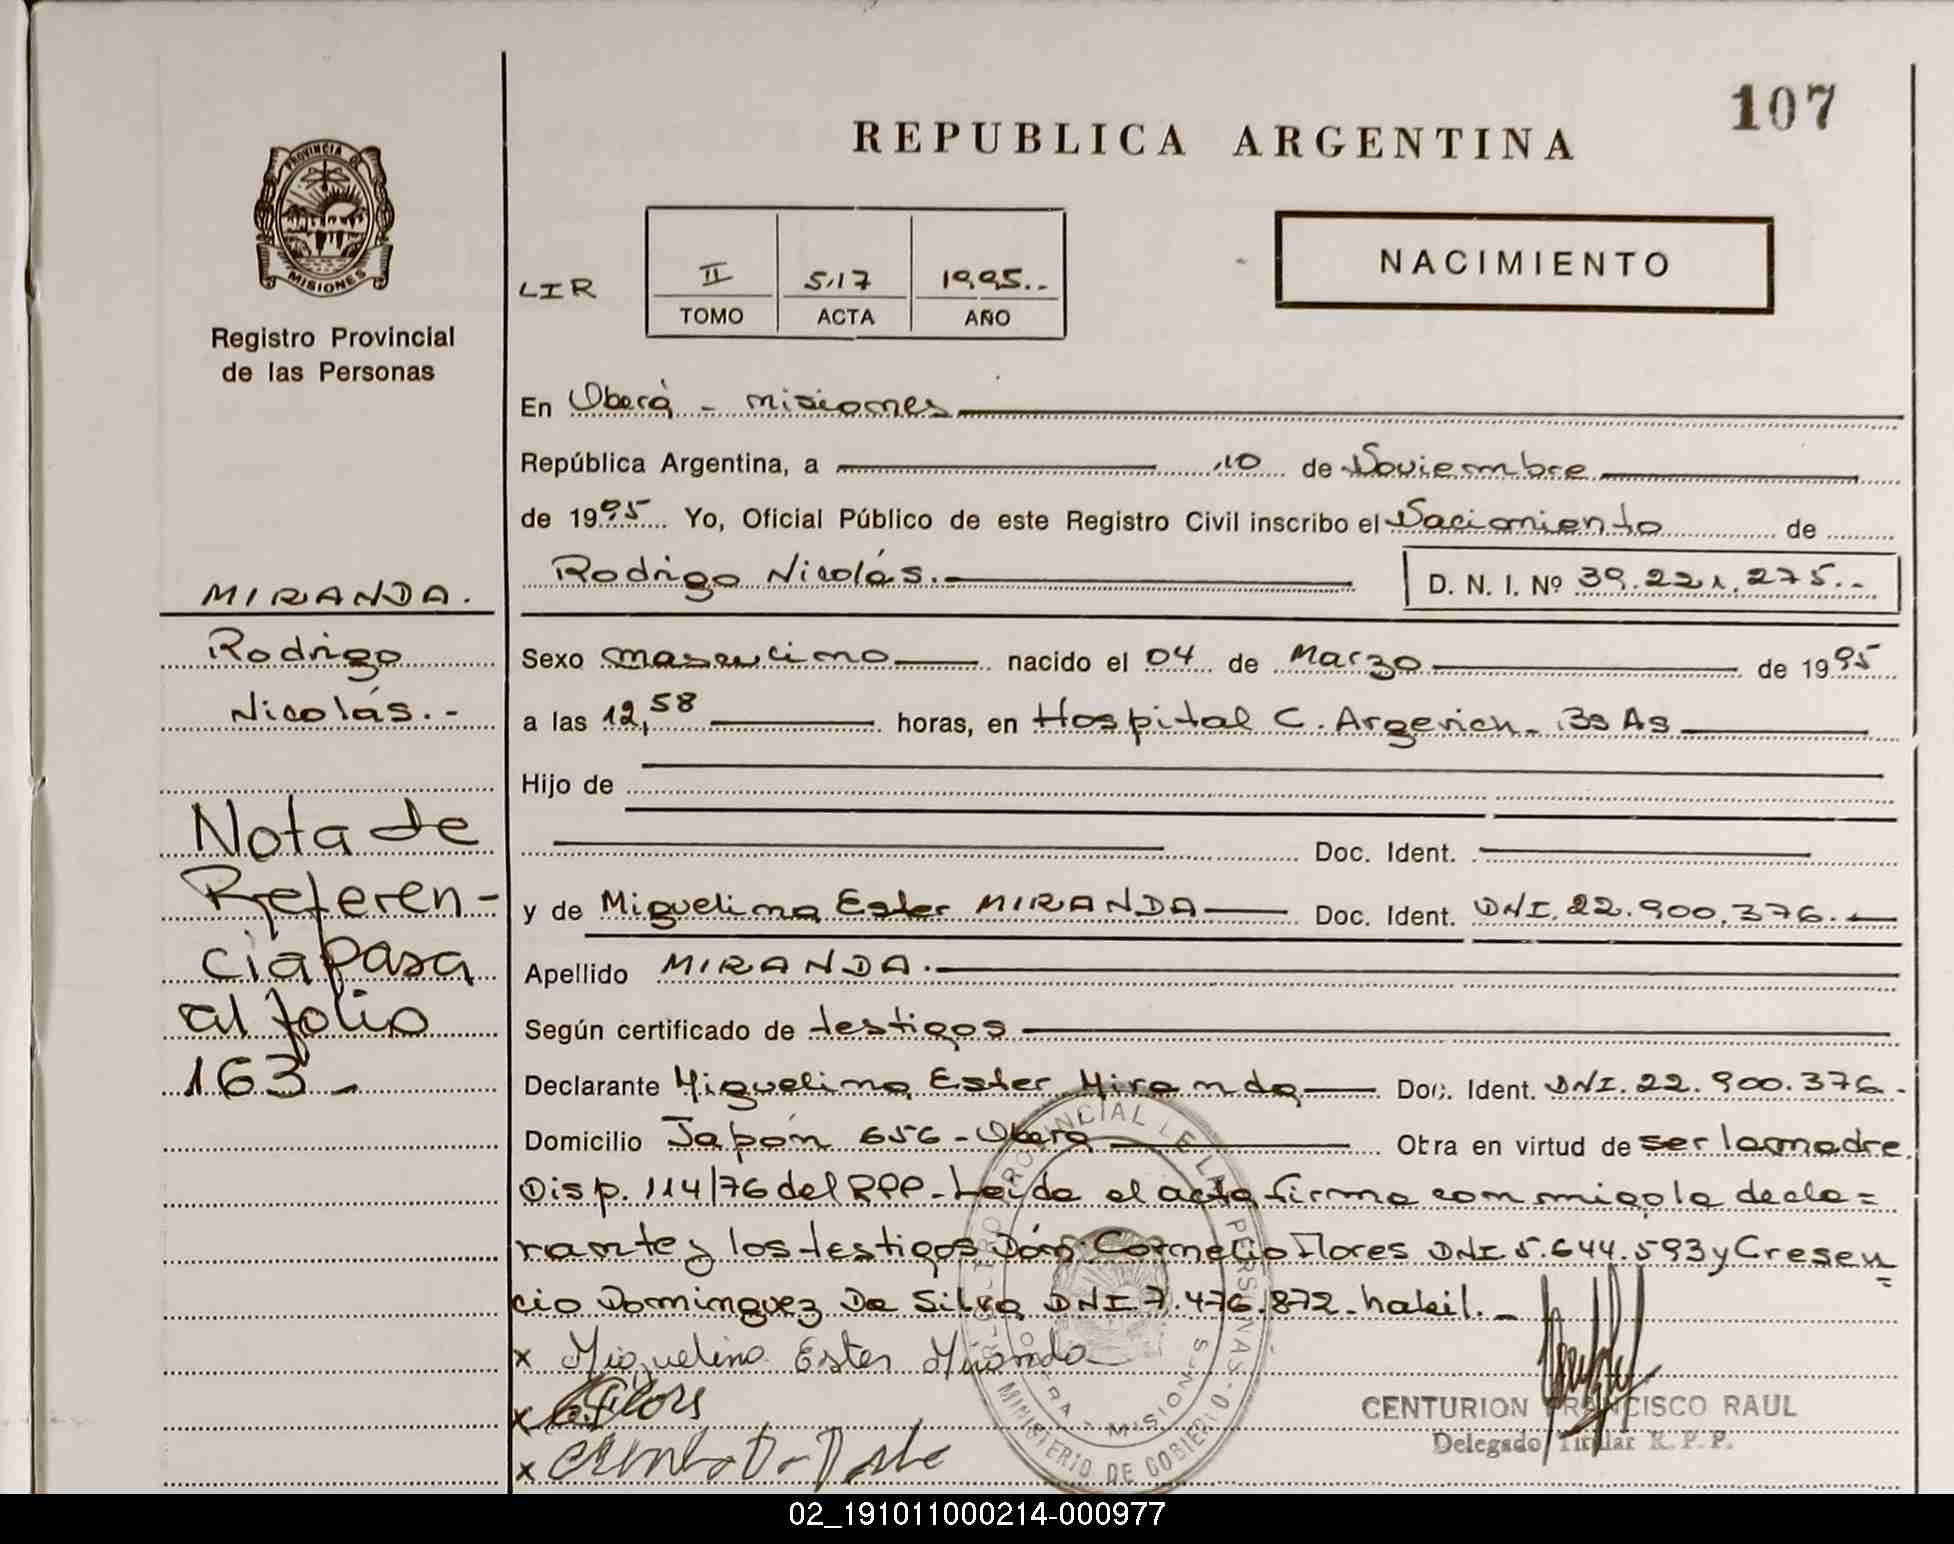 107
REPUBLICA ARGENTINA
PROVINCIA DE
MISIONES
Registro Provincial
de las Personas
LIR
II 517 1995..
TOMO ACTA AÑO
NACIMIENTO
En Oberá - Misiones
República Argentina, a 10 de Noviembre
de 1995 Yo, Oficial Público de este Registro Civil inscribo el Nacimiento de
Rodrigo Nicolás.
D. N. I. Nº 39.221.275..
MIRANDA.
Rodrigo
Nicolás.-
Nota de
Referen-
cia pasa
al folio
163-
Sexo masculino nacido el 04 de Marzo de 1995
a las 12,58 horas, en Hospital C. Argerich - Bs As
Hijo de
Doc. Ident.
y de Miguelina Ester MIRANDA Doc. Ident. DNI. 22.900.376.-
Apellido MIRANDA.
Según certificado de testigos
Declarante Miguelina Ester Miranda Doc. Ident. DNI. 22.900.376-
Domicilio Japón 656 - Oberá Obra en virtud de ser la madre
Disp. 114/76 del RPP - Leída el acta firma conmigo la decla=
rante y los testigos Dón: Cornelio Flores DNI 5.644.593 y Crescen
=
cio Dominguez Da Silva DNI 7.476.872 - habil.-
x Miguelina Ester Miranda
x C. Flors
x
REGISTRO PROVINCIAL DE LAS PERSONAS
OBERA - MISIONES
MINISTERIO DE GOBIERNO
CENTURION FRANCISCO RAUL
Delegado Titular R. P. P.
02_191011000214-000977